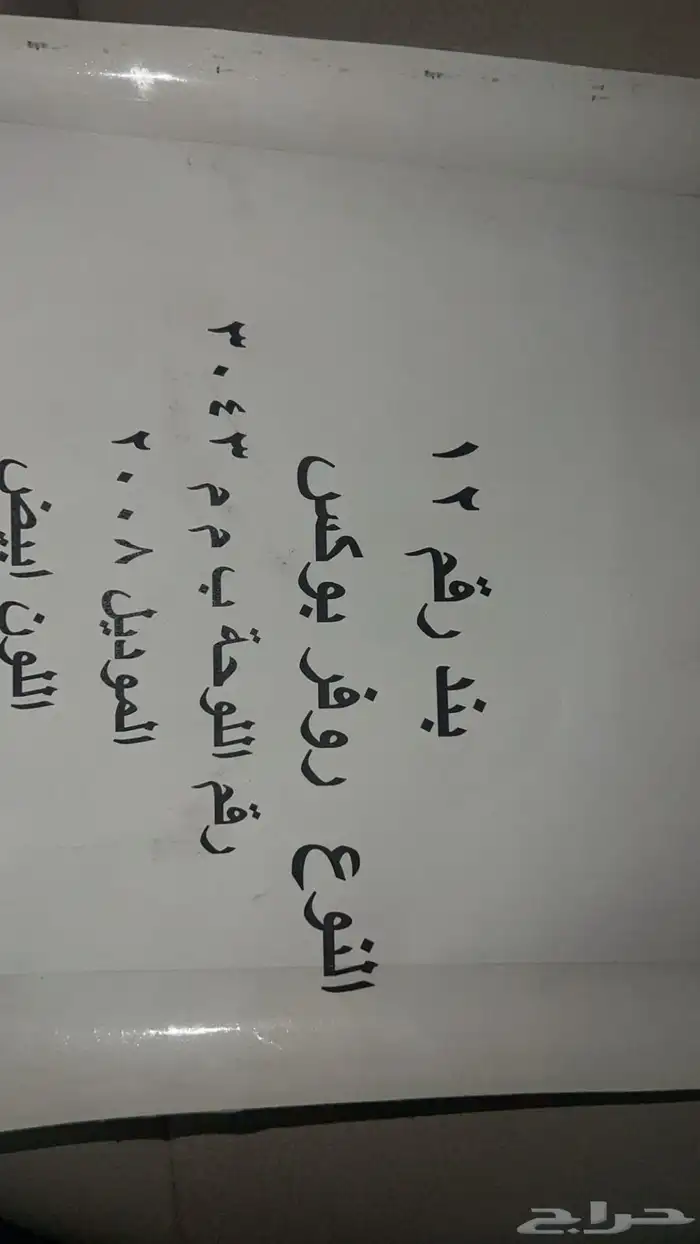 بند رقم ١٢
النوع روفر بوكس
رقم اللوحة ب م م ٣٠٤٣
الموديل ٢٠٠٨
اللون ابيض
حراج